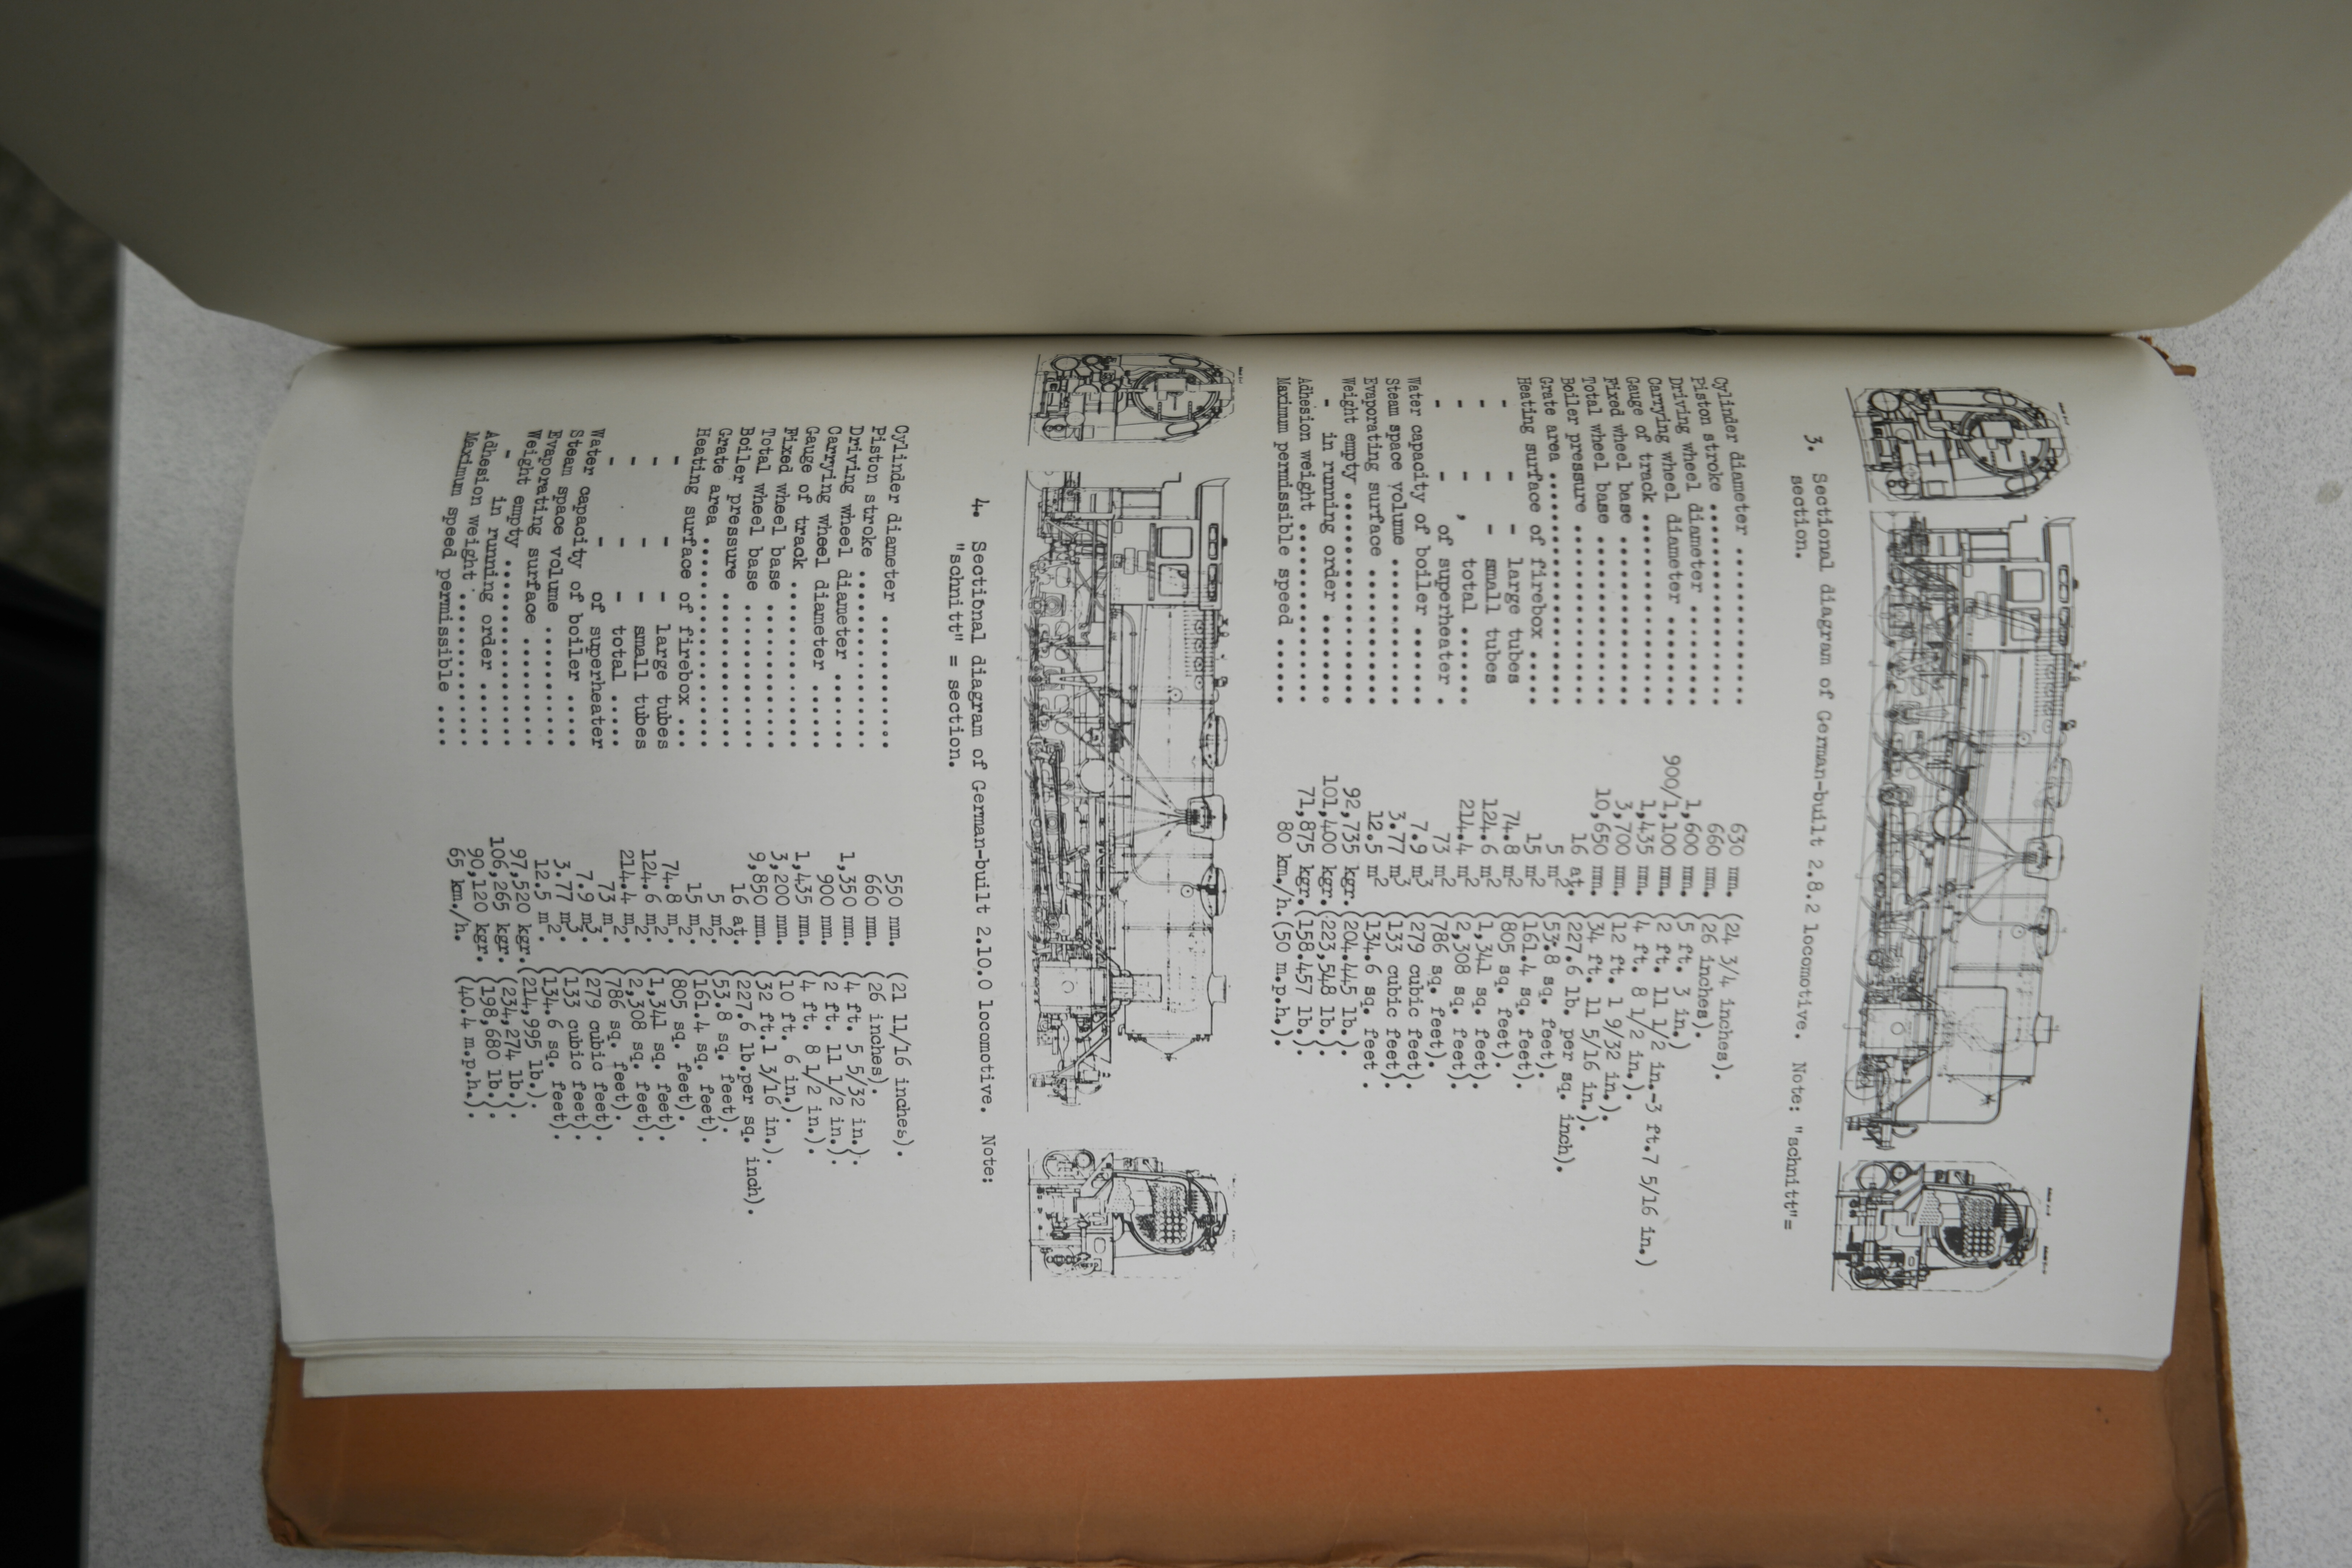 3. Sectional diagram of German-built 2.8.2 locomotive. Note: "schnitt"=
section.
Cylinder diameter ............ 630 mm. (24 3/4 inches).
Piston stroke ................ 660 mm. (26 inches).
Driving wheel diameter ....... 1,600 mm. (5 ft. 3 in.)
Carrying wheel diameter ...... 900/1,100 mm. (2 ft. 11 1/2 in.-3 ft.7 5/16 in.)
Gauge of track ............... 1,435 mm. (4 ft. 8 1/2 in.).
Fixed wheel base ............. 3,700 mm. (12 ft. 1 9/32 in.).
Total wheel base ............. 10,650 mm. (34 ft. 11 5/16 in.).
Boiler pressure .............. 16 at. (227.6 lb. per sq. inch).
Grate area ................... 5 m2 (53.8 sq. feet).
Heating surface of firebox ... 15 m2 (161.4 sq. feet).
- - - large tubes 74.8 m2 (805 sq. feet).
- - - small tubes 124.6 m2 (1,341 sq. feet).
- - , total ....... 214.4 m2 (2,308 sq. feet).
- - of superheater . 73 m2 (786 sq. feet).
Water capacity of boiler ..... 7.9 m3 (279 cubic feet).
Steam space volume ........... 3.77 m3 (133 cubic feet).
Evaporating surface .......... 12.5 m2 (134.6 sq. feet .
Weight empty ................. 92,735 kgr. (204.445 lb.).
- in running order ........ 101,400 kgr. (223,548 lb.).
Adhesion weight .............. 71,875 kgr. (158.457 lb.).
Maximum permissible speed .... 80 km./h. (50 m.p.h.).
4. Sectional diagram of German-built 2.10.0 locomotive. Note:
"schnitt" = section.
Cylinder diameter ............ 550 mm. (21 11/16 inches).
Piston stroke ................ 660 mm. (26 inches).
Driving wheel diameter ....... 1,350 mm. (4 ft. 5 5/32 in.).
Carrying wheel diameter ...... 900 mm. (2 ft. 11 1/2 in.).
Gauge of track ............... 1,435 mm. (4 ft. 8 1/2 in.).
Fixed wheel base ............. 3,200 mm. (10 ft. 6 in.).
Total wheel base ............. 9,850 mm. (32 ft.1 3/16 in.).
Boiler pressure .............. 16 at. (227.6 lb.per sq. inch).
Grate area ................... 5 m2. (53.8 sq. feet).
Heating surface of firebox ... 15 m2. (161.4 sq. feet).
- - - large tubes 74.8 m2. (805 sq. feet).
- - - small tubes 124.6 m2. (1,341 sq. feet).
- - - total ..... 214.4 m2. (2,308 sq. feet).
- - of superheater 73 m2. (786 sq. feet).
Water capacity of boiler ..... 7.9 m3. (279 cubic feet).
Steam space volume ........... 3.77 m3. (133 cubic feet).
Evaporating surface .......... 12.5 m2. (134.6 sq. feet).
Weight empty ................. 97,520 kgr. (214,995 lb.).
- in running order ...... 106,265 kgr. (234,274 lb.).
Adhesion weight .............. 90,120 kgr. (198,680 lb.).
Maximum speed permissible .... 65 km./h. (40.4 m.p.h.).